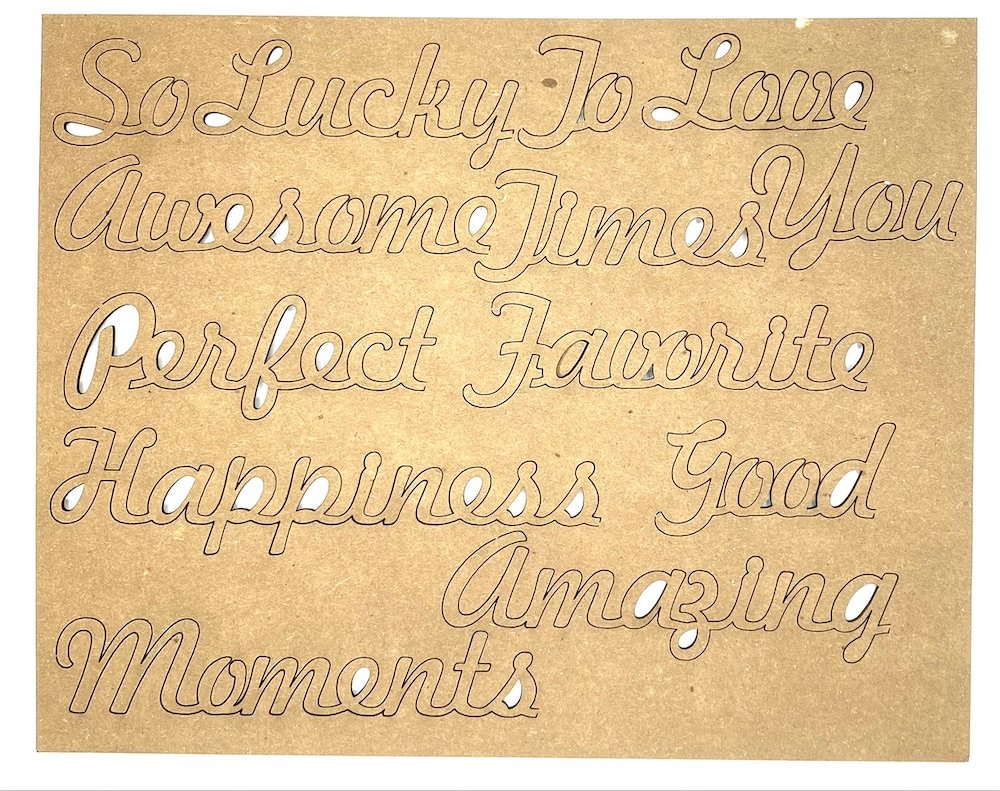 So Lucky To Love
Awesome Times You
Perfect Favorite
Happiness Good
Amazing
Moments